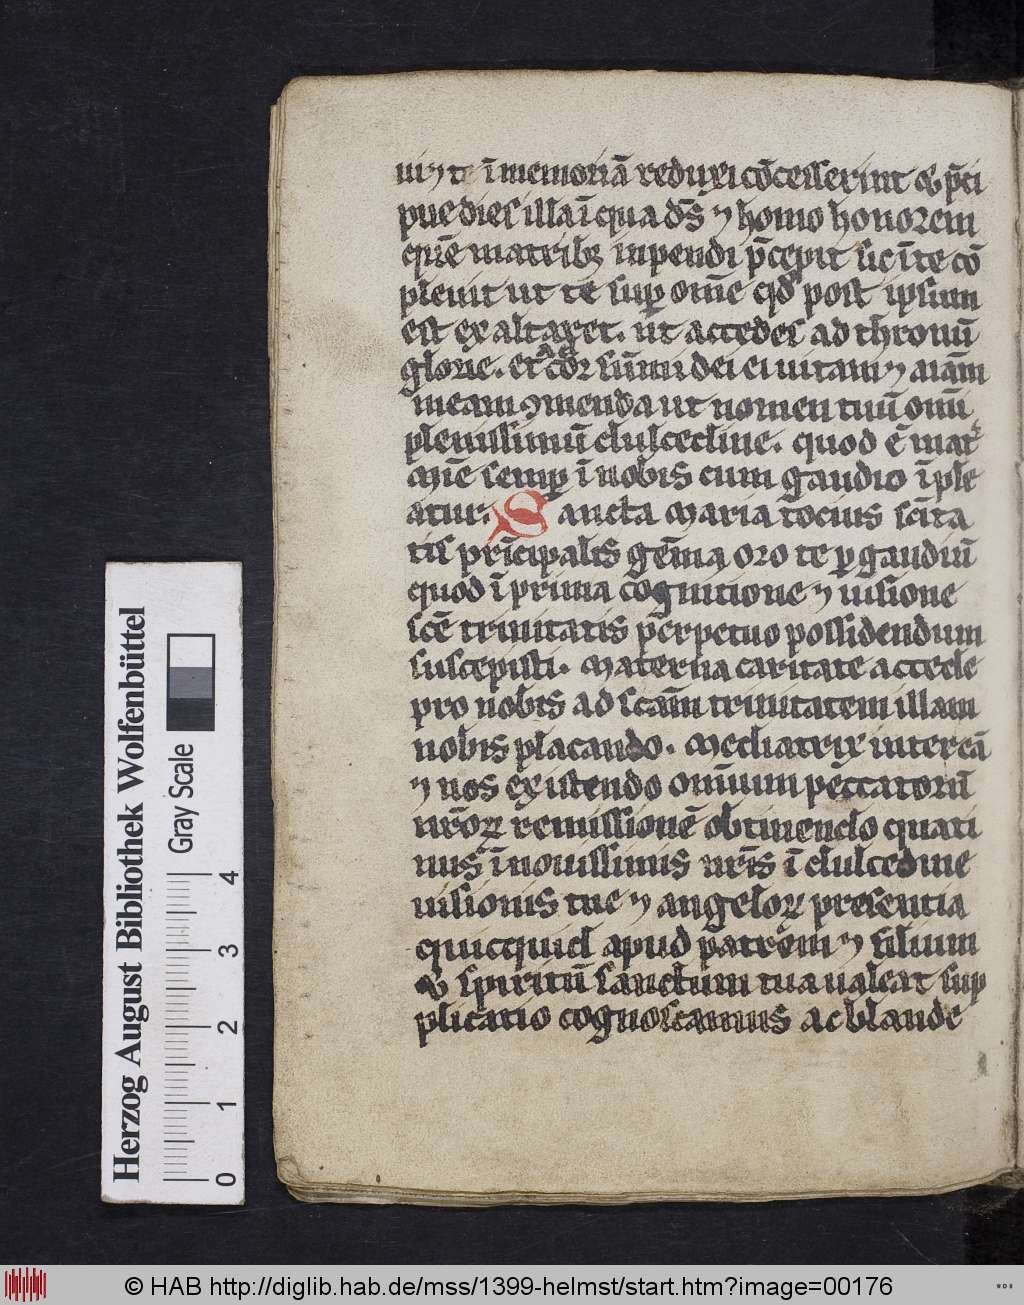 ī memoriā reduxi cōcesserint ⁊ p̄ci
pue dies illa ī qua dr̄s ⁊ homo honorem
quē matribꝫ inpendi p̄cepit sic ī te cō
pleuit ut te sup̱ om̄e qd̓ post ipsum
est exaltaret. ut accedes ad thronū
glorie. et ac cor sūmi dei ei uitam ⁊ aīam
meam ꝯmenda ut nomen tuū om̄i
plenissimū dulcedine. quod ē mat͛
Mīe semp̱ ī nobis cum gaudio īple
atur. Sancta Maria tocius sc̄ita
tis prīcipalis gēma oro te ꝑ gaudiū
quod ī prima cognitione ⁊ uisione
sc̄e trinitatis perpetuo possidendum
suscepisti. Materna caritate accede
pro nobis ad sc̄am trinitatem illam
nobis placando. Mediatrix inter eā
⁊ nos existendo omnium peccatorū
nr̄oꝝ remissionē obtinendo quati
nus ī nouissimis nr̄is ī dulcedine
uisionis tue ⁊ angeloꝝ presentia
quicquid apud patrem ⁊ filium
⁊ spiritū sanctum tua ualeat sup
plicatio cognoscamus ac blande
Herzog August Bibliothek Wolfenbüttel
Gray Scale
0 1 2 3 4
© HAB http://diglib.hab.de/mss/1399-helmst/start.htm?image=00176